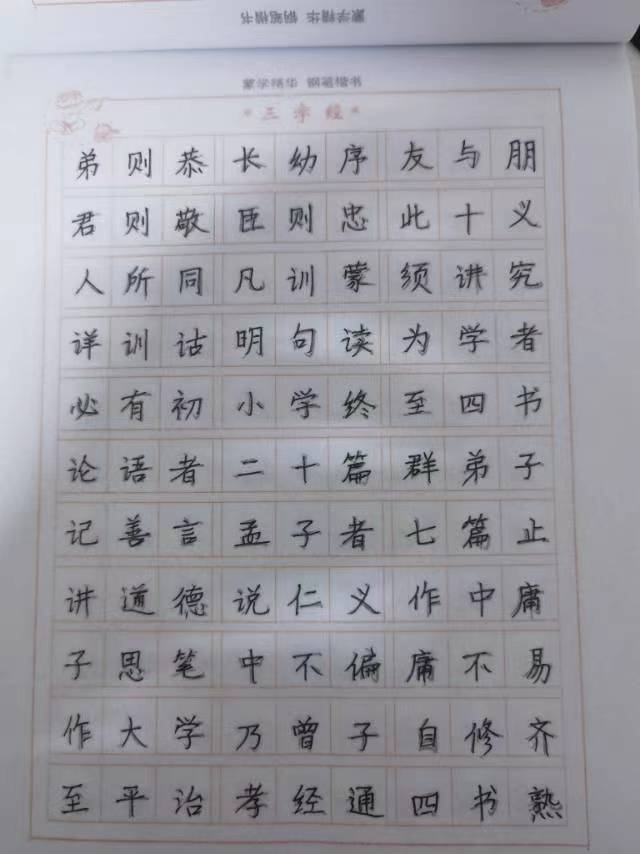 蒙学精华 钢笔楷书
蒙学精华 钢笔楷书
三字经
弟则恭 长幼序 友与朋
君则敬 臣则忠 此十义
人所同 凡训蒙 须讲究
详训诂 明句读 为学者
必有初 小学终 至四书
论语者 二十篇 群弟子
记善言 孟子者 七篇止
讲道德 说仁义 作中庸
子思笔 中不偏 庸不易
作大学 乃曾子 自修齐
至平治 孝经通 四书熟